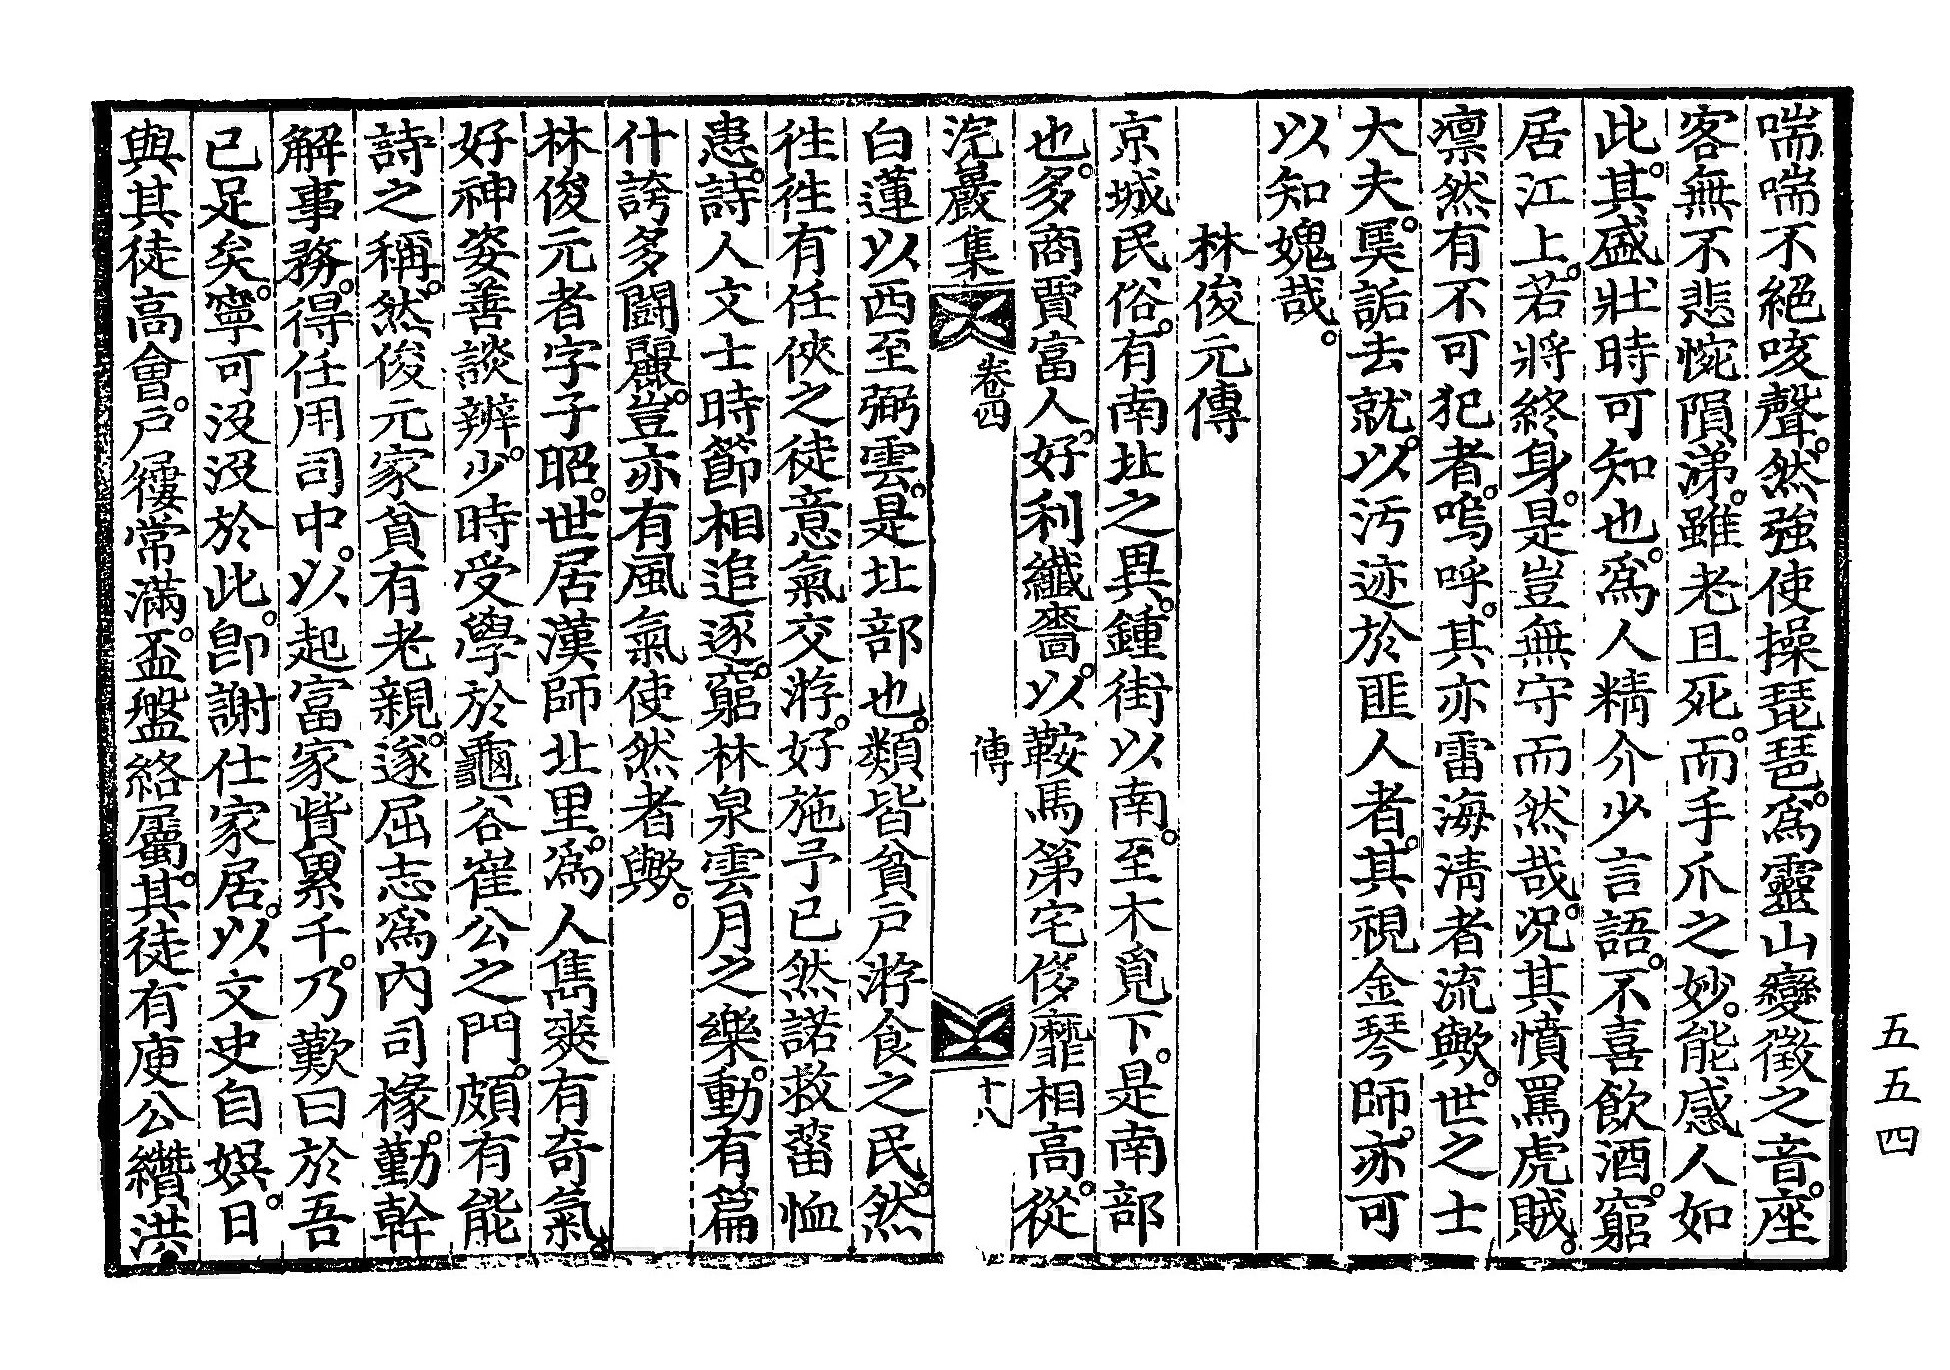 喘喘不絕咳聲。然強使操琵琶。爲靈山變徵之音。座
客無不悲惋隕涕。雖老且死。而手爪之妙。能感人如
此。其盛壯時可知也。爲人精介少言語。不喜飮酒。窮
居江上。若將終身。是豈無守而然哉。況其憤罵虎賊。
凛然有不可犯者。嗚呼。其亦雷海淸者流歟。世之士
大夫。𦮼詬去就。以汚迹於匪人者。其視金琴師。亦可
以知媿哉。
林俊元傳
京城民俗。有南北之異。鍾街以南。至木覓下。是南部
也。多商賈富人。好利纖嗇。以鞍馬第宅侈靡相高。從
浣巖集
卷四
傳
十八
白蓮以西至弼雲。是北部也。類皆貧戶游食之民。然
徃徃有任俠之徒意氣交游。好施予已然諾救菑恤
患。詩人文士時節相追逐。窮林泉雲月之樂。動有篇
什誇多鬪麗。豈亦有風氣使然者歟。
林俊元者字子昭。世居漢師北里。爲人雋爽有奇氣。
好神姿善談辨。少時受學於龜谷崔公之門。頗有能
詩之稱。然俊元家貧有老親。遂屈志爲內司椽。勤幹
解事務。得任用司中。以起富家貲累千。乃歎曰於吾
已足矣。寧可沒沒於此。卽謝仕家居。以文史自娛。日
與其徒高會。戶屨常滿。盃盤絡屬。其徒有庾公纘洪
五五四